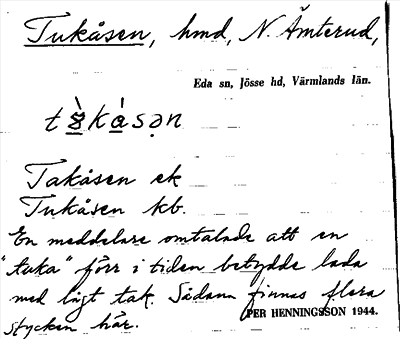 Tukåsen, hmd, N. Ämterud,
Eda sn, Jösse hd, Värmlands län.
Takåsen ek
Tukåsen kb.
En meddelare omtalade att en
"tuka" förr i tiden betydde lada
med lågt tak. Sådana finnas flera
stycken här.
PER HENNINGSSON 1944.